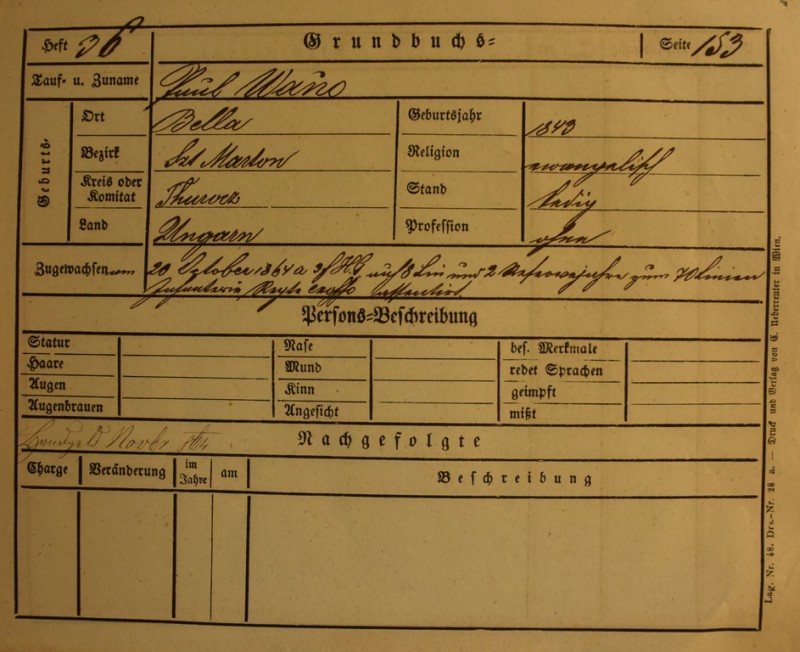 Heft 36 Grundbuchs= Seite 153
Tauf- u. Zuname Paul Wano
Geburts-
Ort Bella Geburtsjahr 1843
Bezirk Szt Marton Religion evangelisch
Kreis oder Komitat Thurocz Stand ledig
Land Ungarn Profession ohne
Zugewachsen am 20 October 1864 a 3 f H.G. auf 8 Lin und 2 Reservejahre zum 70 Linien
Infanterie Regte assentirt.
Persons=Beschreibung
Statur Nase bes. Merkmale
Haare Mund redet Sprachen
Augen Kinn geimpft
Augenbrauen Angesicht mißt
Handgeld Novbr Nachgefolgte
Charge Veränderung im Jahre am Beschreibung
Lag. Nr. 48. Drs.-Nr. 28 a. — Druck und Verlag von C. Ueberreuter in Wien.